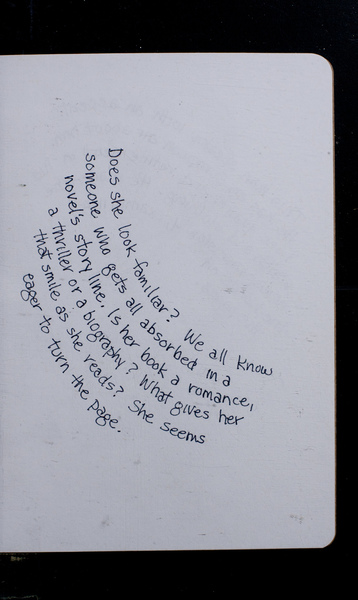 Does she look familiar? We all know
someone who gets all absorbed in a
novel's story line. Is her book a romance,
a thriller or a biography? What gives her
that smile as she reads? She seems
eager to turn the page.